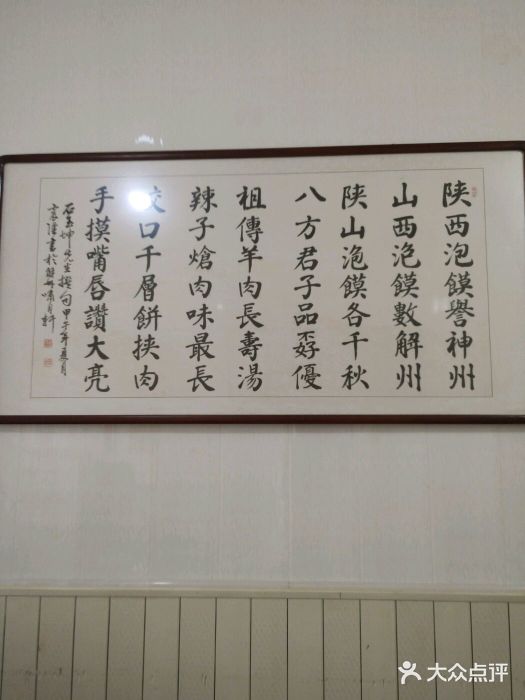 陝西泡饃譽神州
山西泡饃數解州
陝山泡饃各千秋
八方君子品孬優
祖傳羊肉長壽湯
辣子熗肉味最長
咬口千層餅挾肉
手摸嘴唇讚大亮
石玉坤先生撰句甲午年夏月
書於解州嘯月軒
大众点评